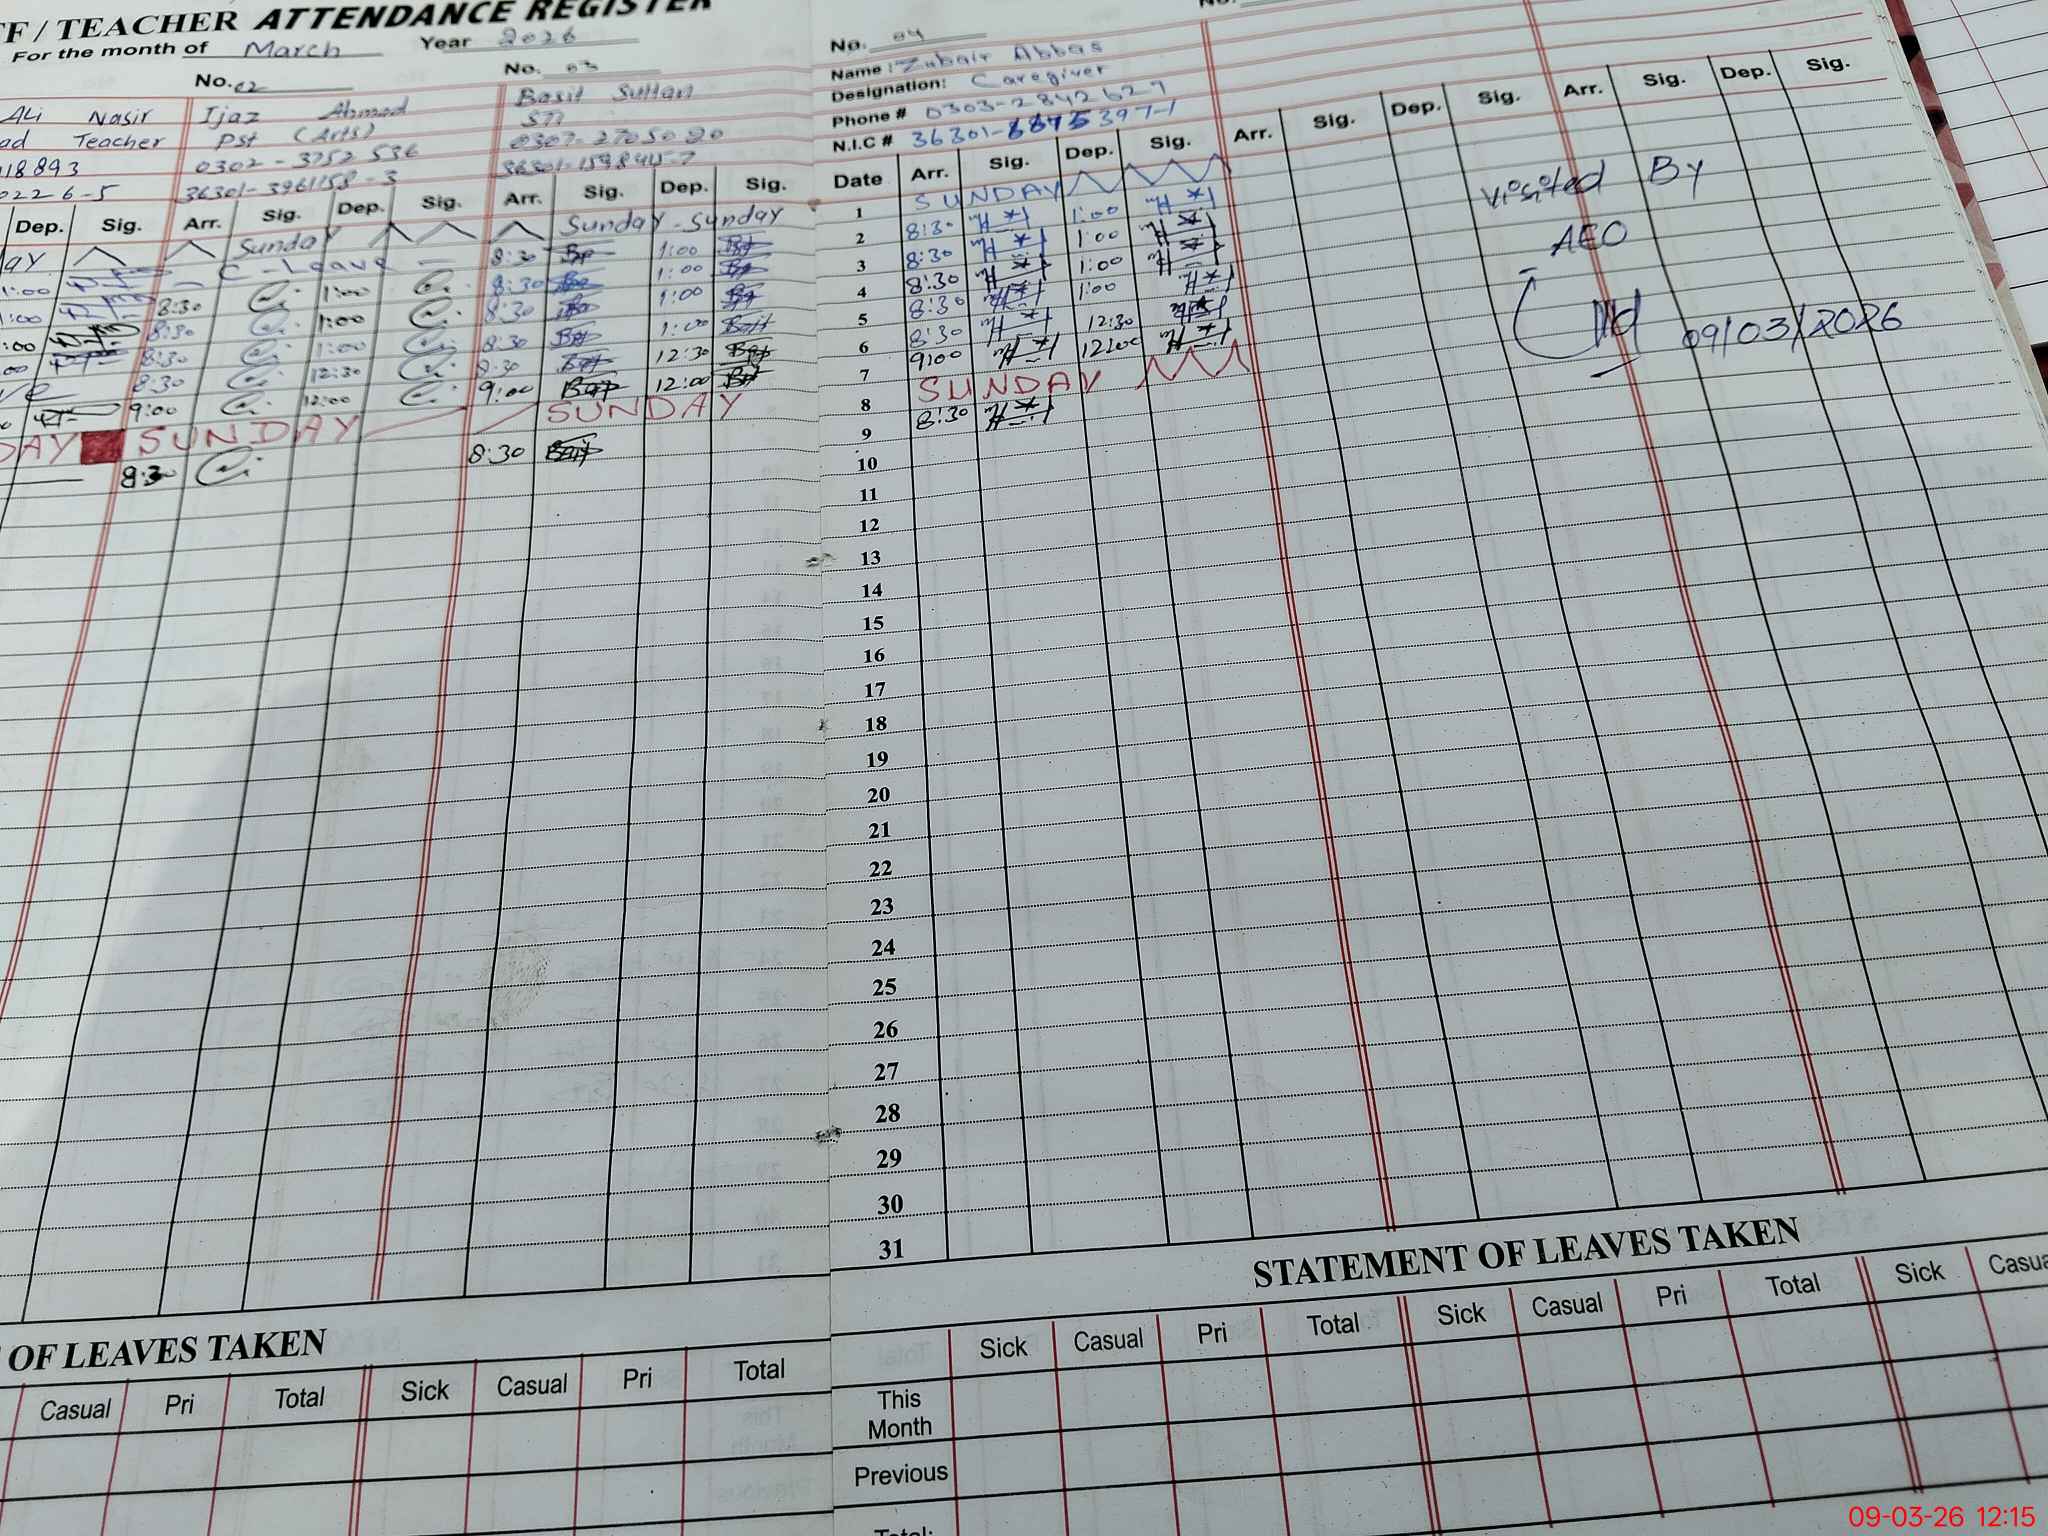 FF / TEACHER ATTENDANCE REGISTER
For the month of March Year 2026
No. 02
No. 03
Ali Nasir
Ijaz Ahmad
Basit Sultan
ad Teacher
Pst (Arts)
STI
18893
0302-3752536
0307-2705020
022 6-5
Dep. Sig. Arr. Sig. Dep. Sig. Arr. Sig. Dep. Sig.
ay Sunday Sunday - Sunday
C-Leave - 8:30 1:00
1:00 8:30 1:00 8:30 1:00
1:00 8:30 1:00 8:30 1:00
:00 8:30 1:00 8:30 1:00
00 8:30 12:30 8:30 12:30
9:00 12:00 9:00 12:00
DAY SUNDAY SUNDAY
8:30 8:30
OF LEAVES TAKEN
Casual Pri Total Sick Casual Pri Total
No. 04
No.
Name: Zubair Abbas
Designation: Caregiver
Phone # 0303-2842629
N.I.C #
Date Arr. Sig. Dep. Sig. Arr. Sig. Dep. Sig. Arr. Sig. Dep. Sig.
1 SUNDAY
2 8:30 1:00
3 8:30 1:00
4 8:30 1:00
5 8:30 1:00
6 8:30 12:30
7 9:00 12:00
8 SUNDAY
9 8:30
10
11
12
13
14
15
16
17
18
19
20
21
22
23
24
25
26
27
28
29
30
31
Visited By
AEO
09/03/2026
STATEMENT OF LEAVES TAKEN
Sick Casual Pri Total Sick Casual Pri Total Sick Casua
This
Month
Previous
Total:
09-03-26 12:15